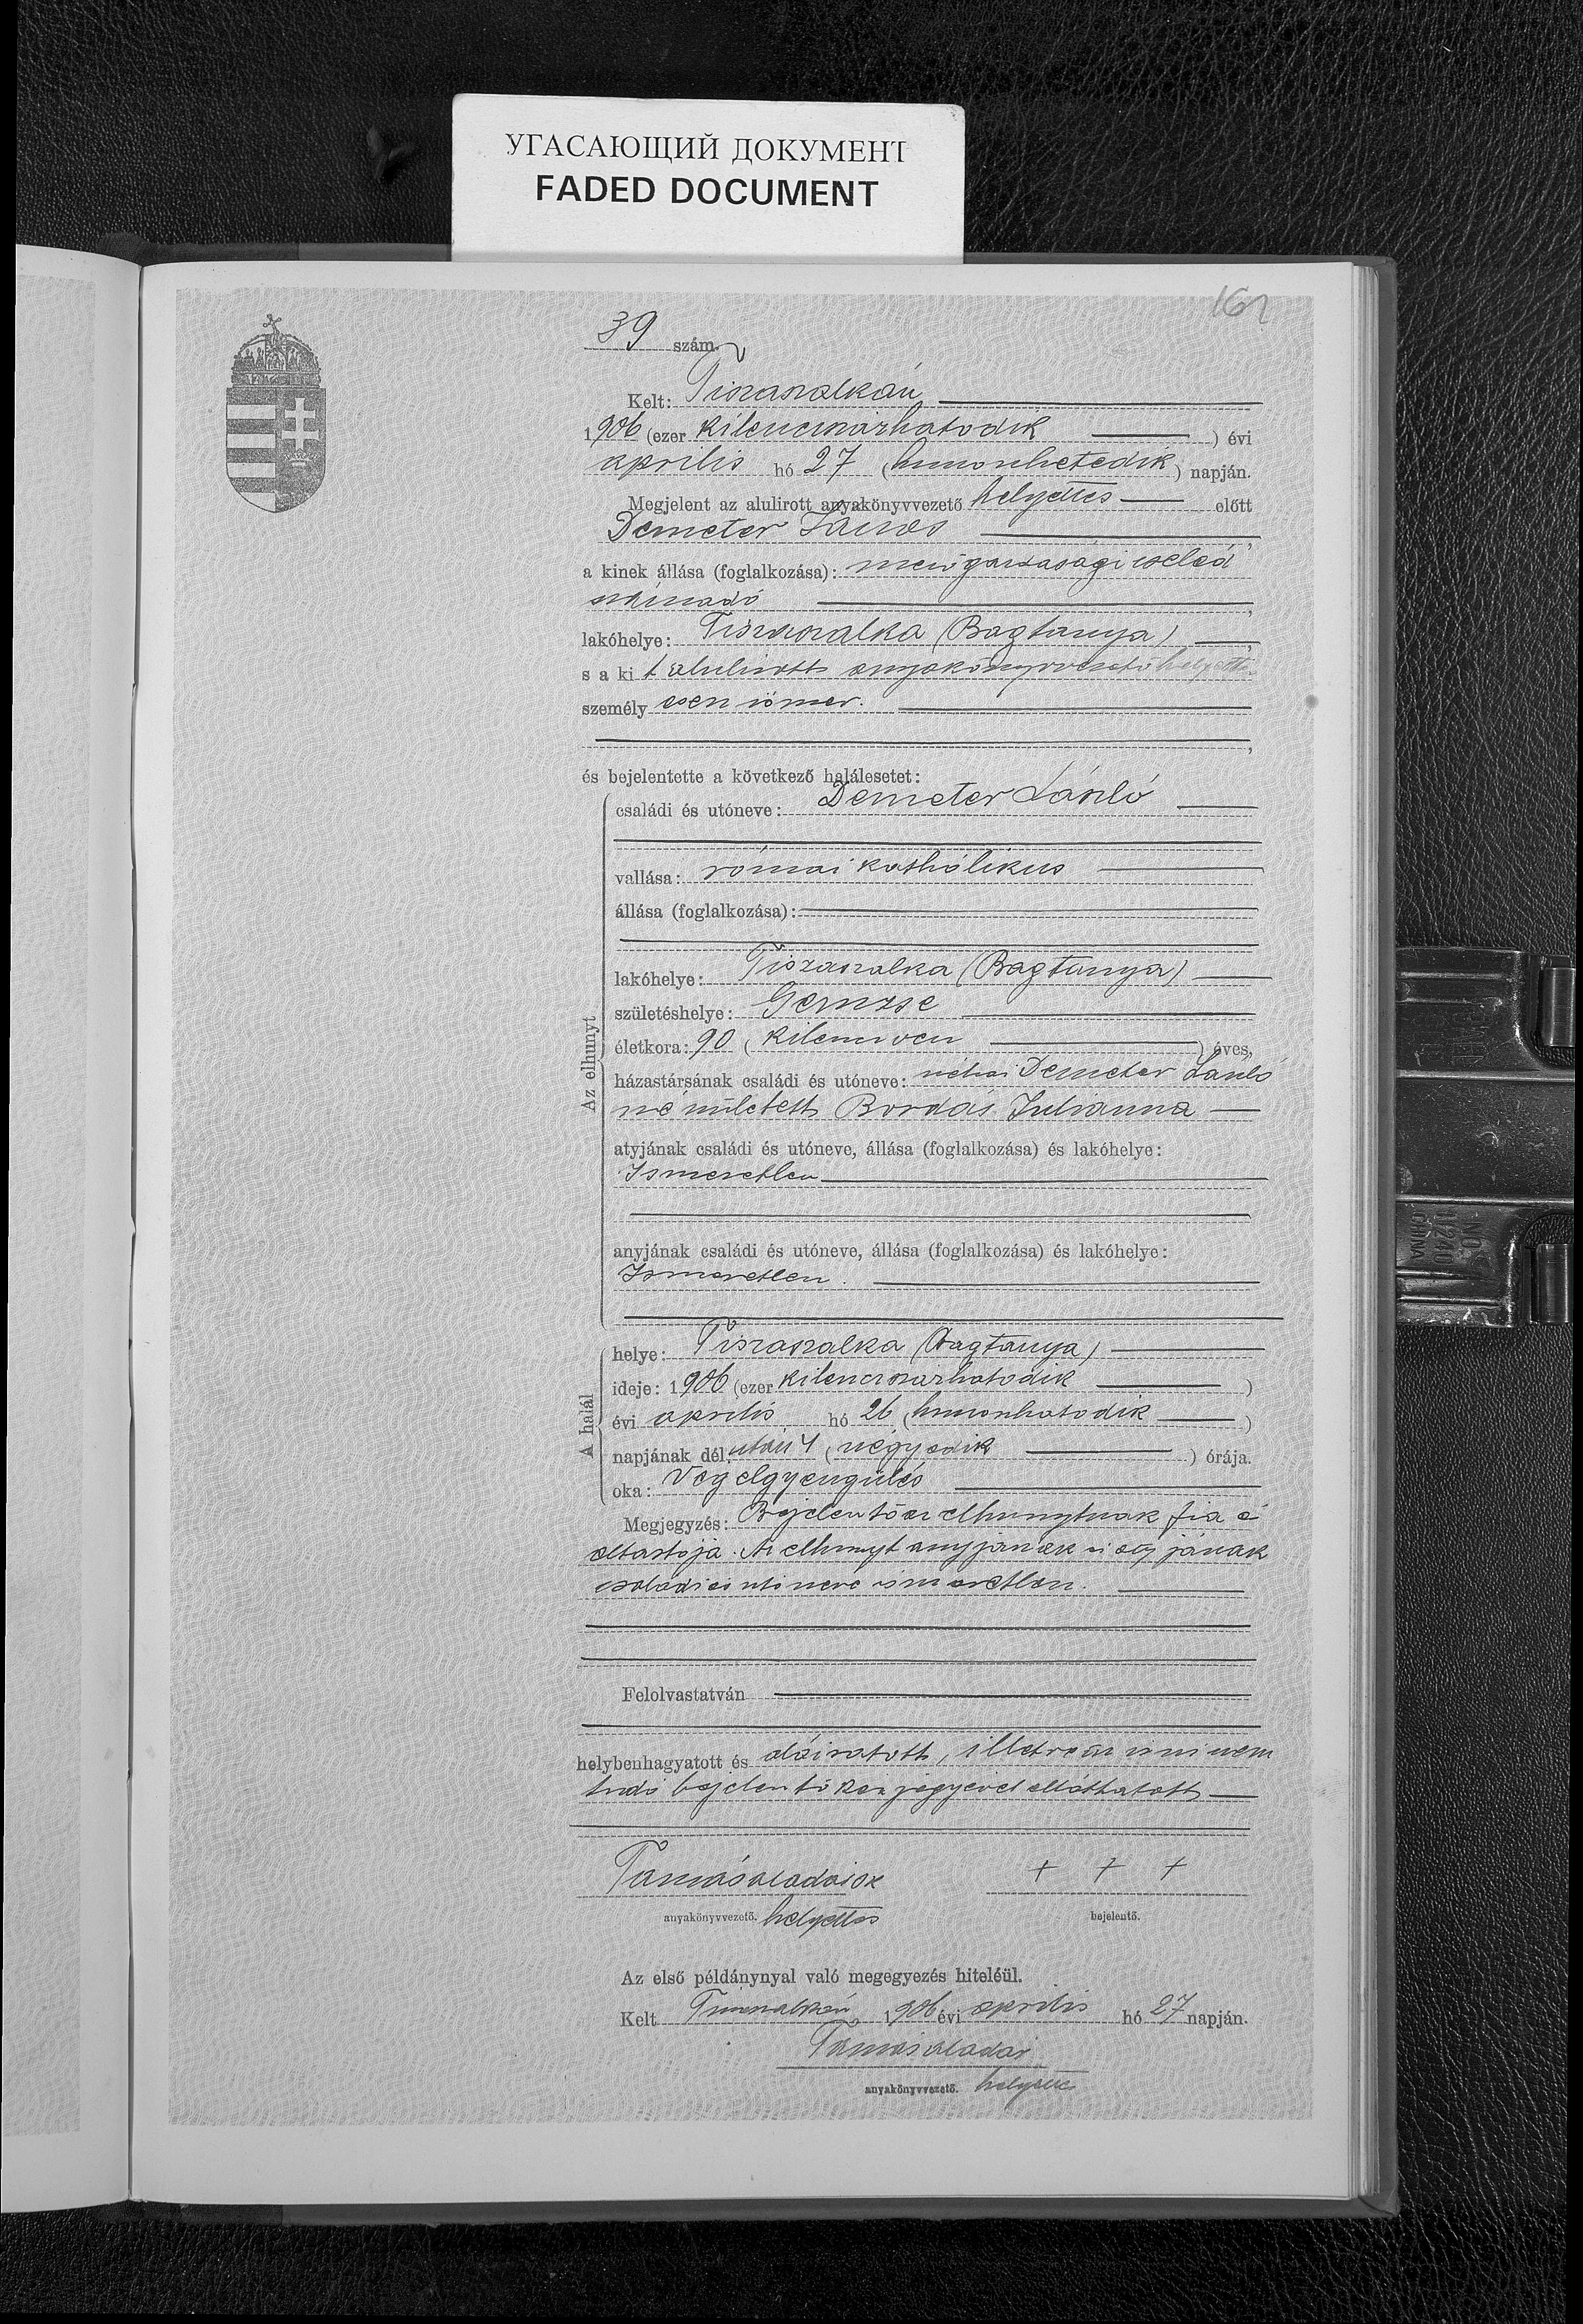 УГАСАЮЩИЙ ДОКУМЕНТ
FADED DOCUMENT
162
39 szám.
Kelt: Tiszaszalkán
1906 (ezer kilencszázhatodik ) évi
április hó 27 (huszonhetedik) napján.
Megjelent az alulirott anyakönyvvezető helyettes előtt
Demeter János
a kinek állása (foglalkozása): mezőgazdasági cseléd
számadó
lakóhelye: Tiszaszalka (Bagtanya)
s a ki t alulirott anyakönyvvezető helyettes
személyesen ismer.
és bejelentette a következő halálesetet:
Az elhunyt
családi és utóneve: Demeter László
vallása: római katholikus
állása (foglalkozása):
lakóhelye: Tiszaszalka (Bagtanya)
születéshelye: Gemzse
életkora: 90 (kilencven ) éves,
házastársának családi és utóneve: néhai Demeter László
né született Bordás Julianna
atyjának családi és utóneve, állása (foglalkozása) és lakóhelye:
Ismeretlen
anyjának családi és utóneve, állása (foglalkozása) és lakóhelye:
Ismeretlen.
A halál
helye: Tiszaszalka (Bagtanya)
ideje: 1906 (ezer kilencszázhatodik )
évi április hó 26 (huszonhatodik )
napjának dél után 4 (negyedik ) órája.
oka: Végelgyengülés
Megjegyzés: Bejelentő az elhunytnak fia é
eltartója. Az elhunyt anyjának és atyjának
családi és utóneve ismeretlen.
Felolvastatván
helybenhagyatott és aláiratott, illetve az irni nem
tudó bejelentő kézjegyével elláttatott
Tamás Aladár sk
+ + +
anyakönyvvezető. helyettes
bejelentő.
Az első példánynyal való megegyezés hiteléül.
Kelt Tiszaszalkán 1906 évi április hó 27 napján.
Tamás Aladár
anyakönyvvezető. helyettes
NO
11240
CHINA